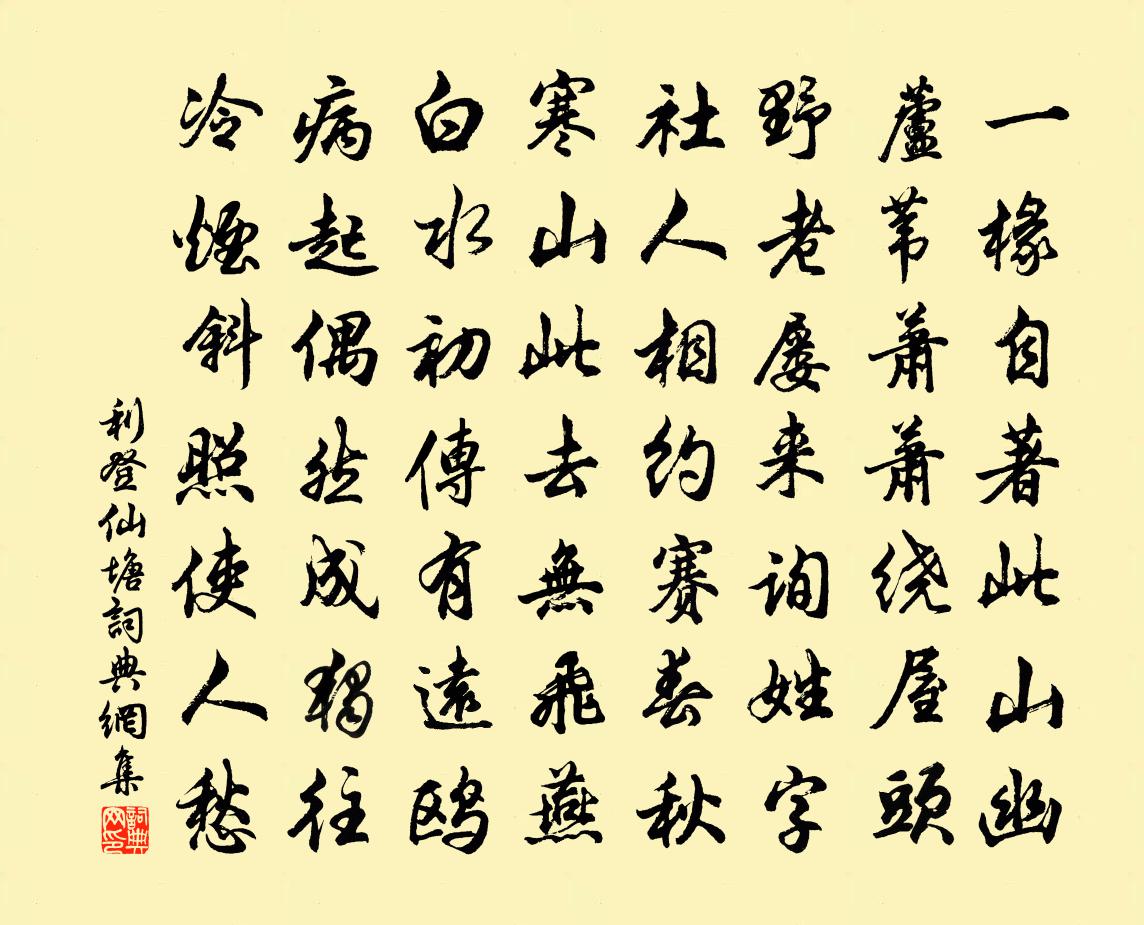 一椽自著此山幽
蘆苇萧萧绕屋頭
野老屡来询姓字
社人相约赛春秋
寒山此去無飛燕
白水初傳有遠鸥
病起偶然成獨往
冷煙斜照使人愁
利登仙塘詞典網集
詞典
网印